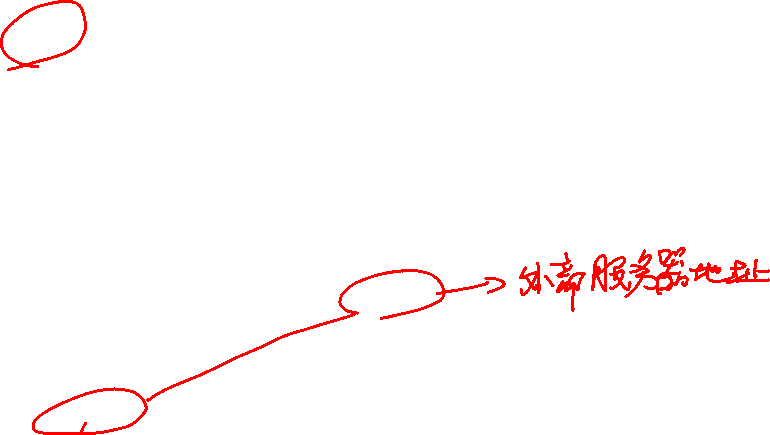 外部服务器地址